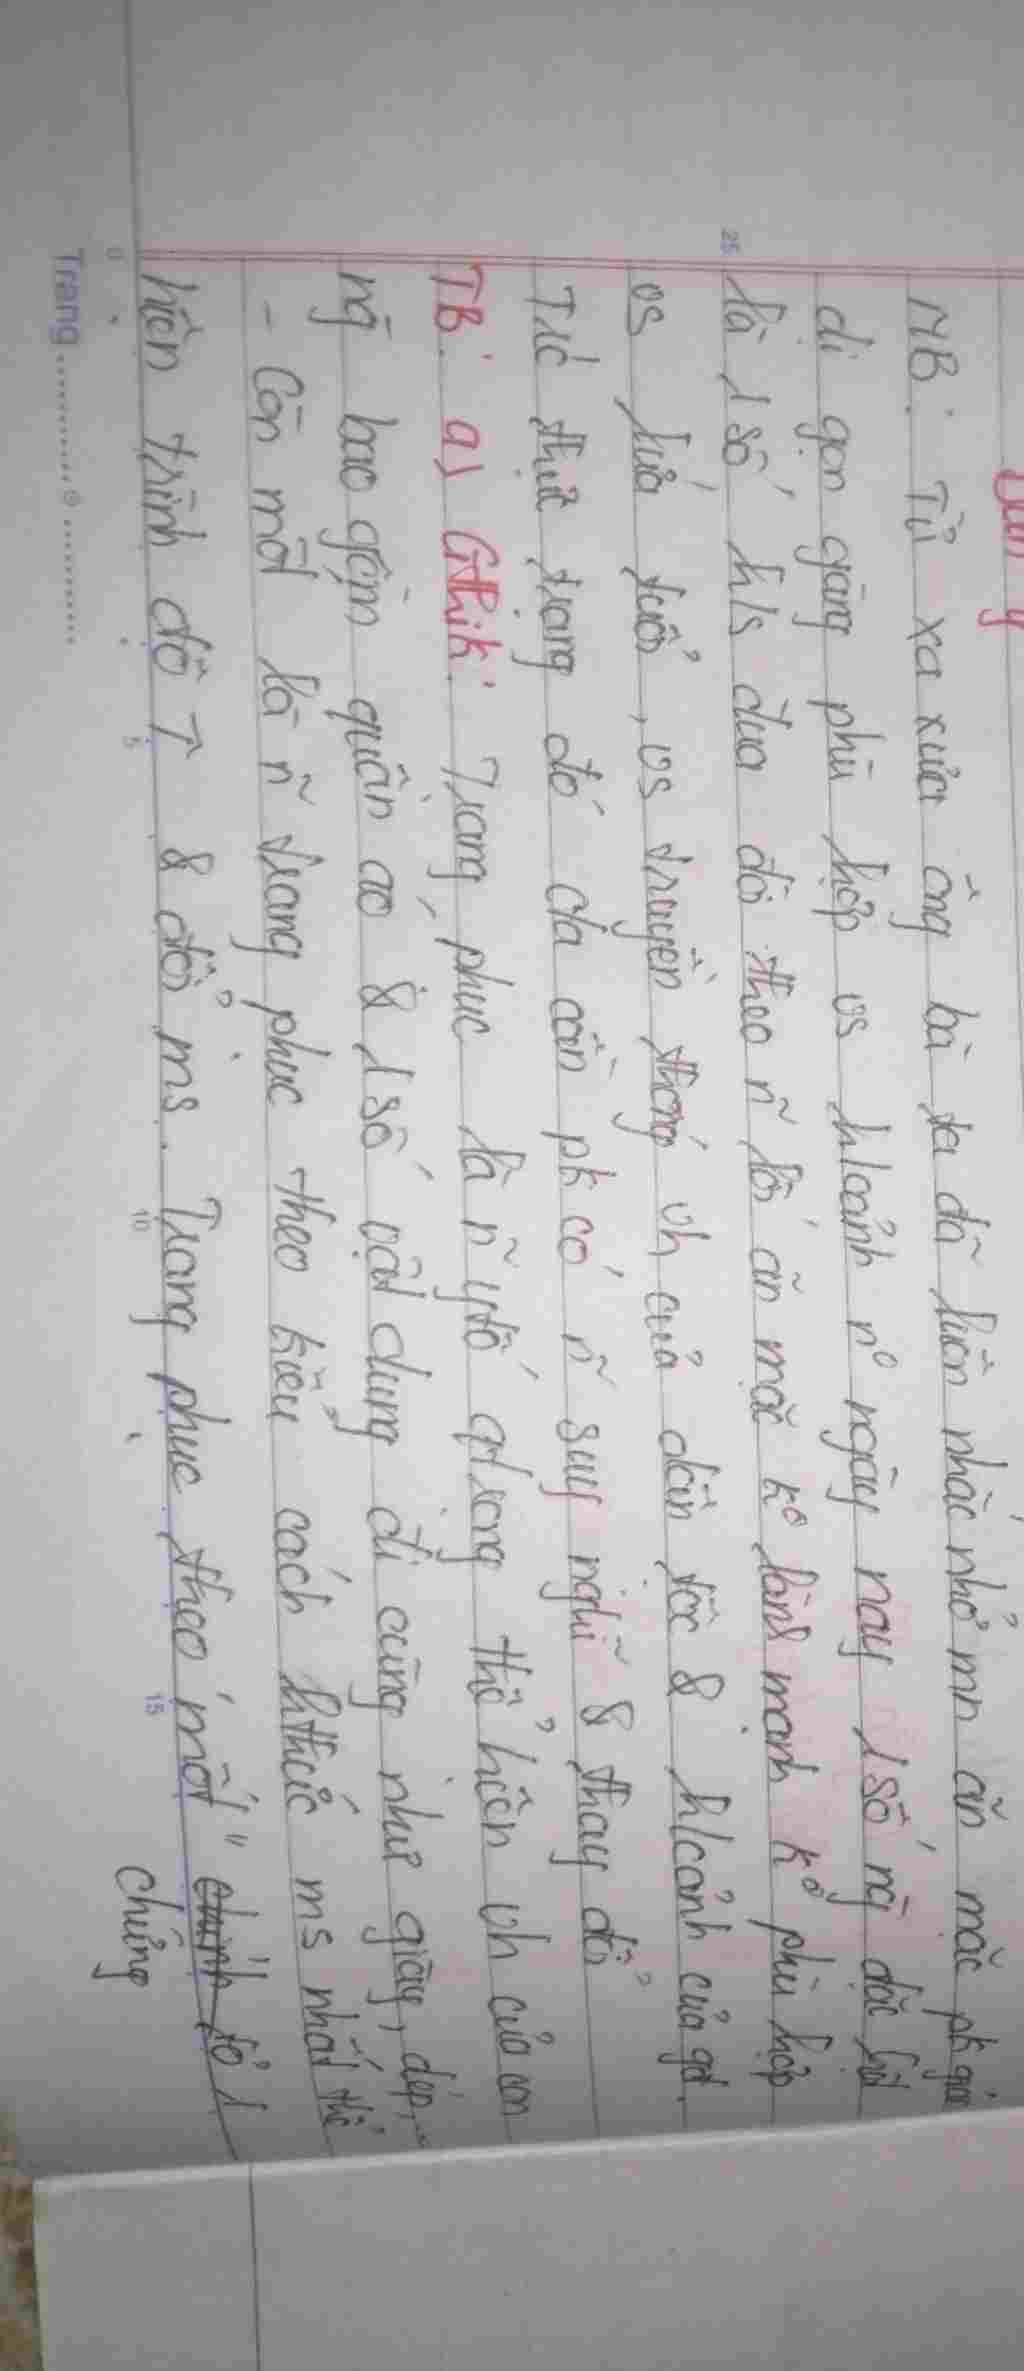 Dàn ý
MB: Từ xa xưa ông bà ta đã luôn nhắc nhở mn ăn mặc pk giản
dị gọn gàng phù hợp vs h/cảnh nº ngày nay 1 số ng đặc biệt
là 1 số h/s đua đòi theo n̄ lối ăn mặc kº lành mạnh kº phù hợp
vs lứa tuổi, vs truyền thống vh của dân tộc & h/cảnh của gđ.
Trc thực trạng đó cta cần pk có n̄ suy nghĩ & thay đổi
TB: a) Gthik: Trang phục là n̄ ytố qtrọng thể hiện vh của con
ng bao gồm quần áo & 1 số vật dụng đi cùng như giày, dép, ...
- Còn mốt là n̄ trang phục theo kiểu cách hthức ms nhất thể
hiện trình độ T & đổi ms. Trang phục theo mốt "chính tỏ 1
chứng
25
0
5
10
15
Trang